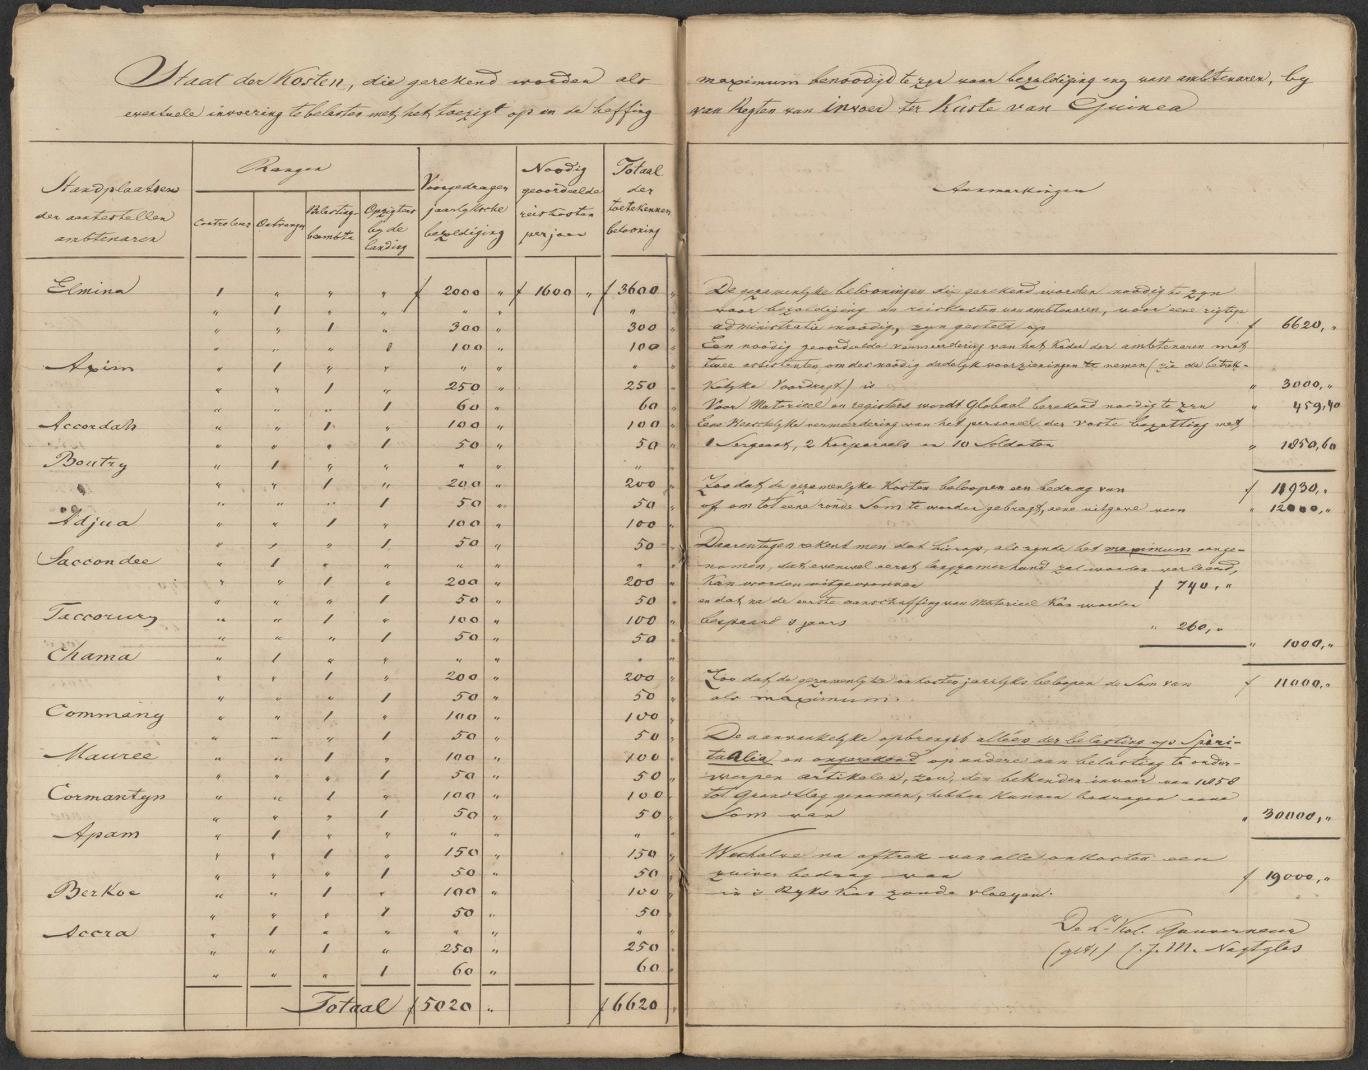 Staat der Kosten, die gerekend worden als maximum benoodigd te zyn voor bezoldiging enz van ambtenaren, by
eventuele invoering te belasten met het toezigt op en de heffing van Regten van invoer ter Kuste van Guinea
Standplaatsen der aantestellen ambtenaren
Rangen
Controleur
Ontvanger
Belasting-beambte
Opzigters by de landing
Voorgedragen jaarlyksche bezoldiging
Noodig geoordeelde reiskosten per jaar
Totaal der toetekennen belooning
Aanmerkingen
Elmina 1 " " " f 2000 " f 1600 " f 3600 "
" 1 " " " " "
" " 1 " 300 " 300 "
" " " 1 100 " 100 "
Axim " 1 " " " " "
" " 1 " 250 " 250 "
" " " 1 60 " 60 "
Accordah " " 1 " 100 " 100 "
" " " 1 50 " 50 "
Boutry " 1 " " " " "
" " 1 " 200 " 200 "
" " " 1 50 " 50 "
Adjua " " 1 " 100 " 100 "
" " " 1 50 " 50 "
Saccondee " 1 " " " " "
" " 1 " 200 " 200 "
" " " 1 50 " 50 "
Taccorary " " 1 " 100 " 100 "
" " " 1 50 " 50 "
Chama " 1 " " " " "
" " 1 " 200 " 200 "
" " " 1 50 " 50 "
Commany " " 1 " 100 " 100 "
" " " 1 50 " 50 "
Mauree " " 1 " 100 " 100 "
" " " 1 50 " 50 "
Cormantyn " " 1 " 100 " 100 "
" " " 1 50 " 50 "
Apam " 1 " " " " "
" " 1 " 150 " 150 "
" " " 1 50 " 50 "
Berkoe " " 1 " 100 " 100 "
" " " 1 50 " 50 "
Accra " 1 " " " " "
" " 1 " 250 " 250 "
" " " 1 60 " 60 "
Totaal f 5020 " f 6620 "
De gezamenlyke belooningen die gerekend worden noodig te zyn
voor bezoldiging en reiskosten van ambtenaren, voor eene rigtige
administratie noodig, zyn gesteld op f 6620,"
Een noodig geoordeelde vermeerdering van het Kader der ambtenaren met
twee assistenten, om des noodig dadelyk voorzieningen te nemen (zie de betrek-
kelyke Voordragt) is " 3000,"
Voor Materieel en registers wordt Globaal berekend noodig te zyn " 459,40
Eene Weerselyke vermeerdering van het personeel der vaste bezetting met
1 Sergeant, 2 Korporaals en 10 Soldaten " 1850,60
Zoodat de gezamenlyke Kosten beloopen een bedrag van f 11930,"
of om tot eene ronde Som te worden gebragt, eene uitgave van " 12000,"
Daarentegen rekent men dat hierop, als zynde het maximum aange-
nomen, dat evenwel eerst langzamerhand zal worden verleend,
Kan worden uitgewonnen f 740,"
en dat na de eerste aanschaffing van Materieel Kan worden
bespaard 's jaars " 260," " 1000,"
Zoo dat de gezamenlyke onkosten jaarlyks beloopen de Som van f 11000,"
als maximum.
De aanvankelyke opbrengst alleen der belasting op Spiri-
tualia en ongerekend op andere aan belasting te onder-
werpen artikelen, zou, den bekenden invoer van 1858
tot Grondslag genomen, hebben Kunnen bedragen eene
Som van " 30000,"
Weshalve na aftrek van alle onkosten een
zuiver bedrag van f 19000,"
in 's Ryks Kas zoude vloeyen.
De Lt. Kol. Gouverneur
(get.) C.J.M. Nagtglas